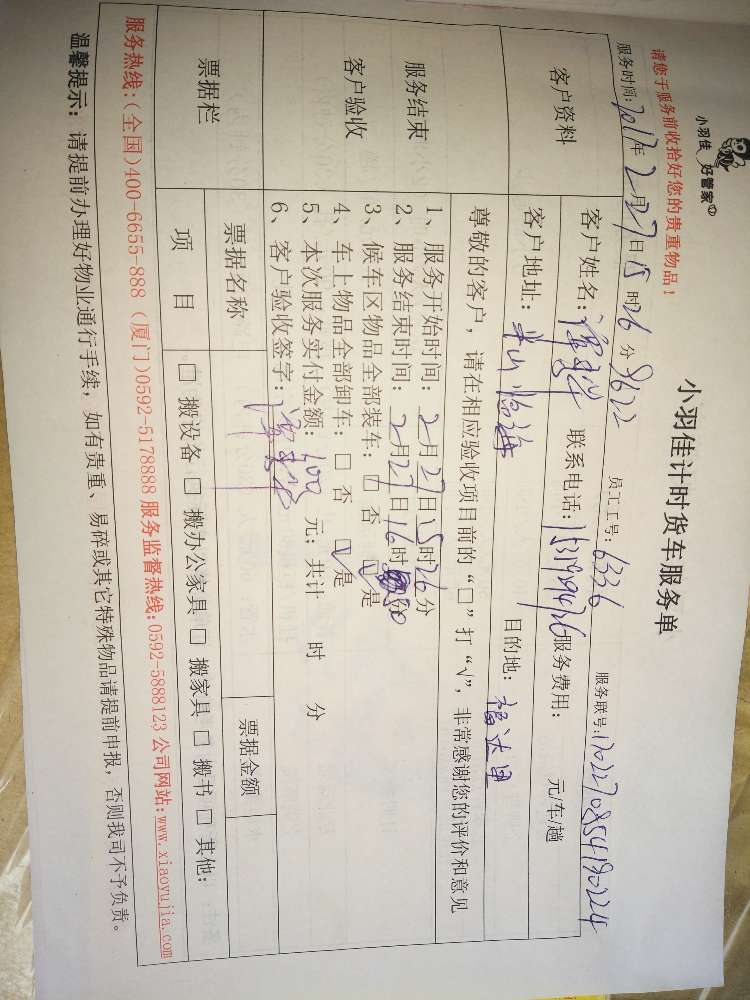 小羽佳 好管家
小羽佳计时货车服务单
请您于服务前收拾好您的贵重物品！
服务时间:2017年2月27日15时26分 8622 员工工号: 6336 服务联号:1702270854190224
客户资料
客户姓名: 联系电话: 服务费用: 元/车/趟
客户地址: 半山临海 目的地: 福达里
服务结束
客户验收
尊敬的客户，请在相应验收项目前的“□”打“√”，非常感谢您的评价和意见
1、服务开始时间: 2月27日15时26分
2、服务结束时间: 2月27日16时50
3、候车区物品全部装车: □ 否 ☑ 是
4、车上物品全部卸车: □ 否 ☑ 是
5、本次服务实付金额: 100 元; 共计 时 分
6、客户验收签字:
票据栏
票据名称 票据金额
项 目 □ 搬设备 □ 搬办公家具 □ 搬家具 □ 搬书 □ 其他:
服务热线:(全国)400-6655-888 (厦门)0592-5178888 服务监督热线:0592-5888123 公司网站:www.xiaoyujia.com
温馨提示: 请提前办理好物业通行手续, 如有贵重、易碎或其它特殊物品请提前申报, 否则我司不予负责。